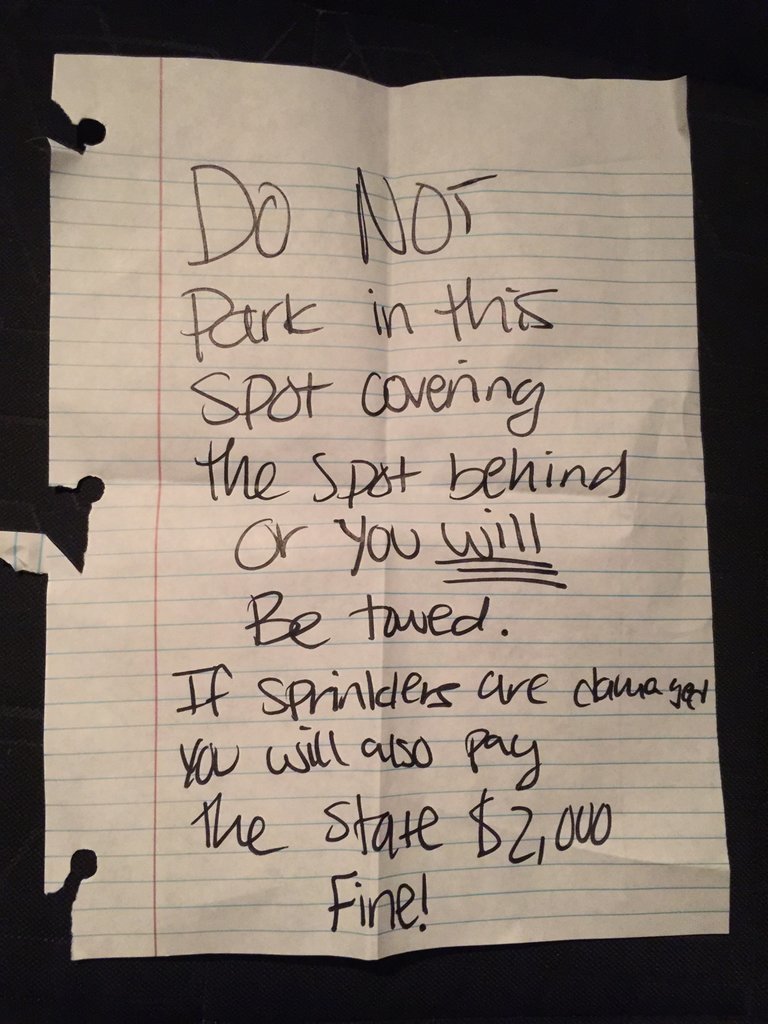 DO NOT
Park in this
Spot covering
the spot behind
or you will
Be towed.
If sprinklers are damaged
you will also pay
the state $2,000
Fine!